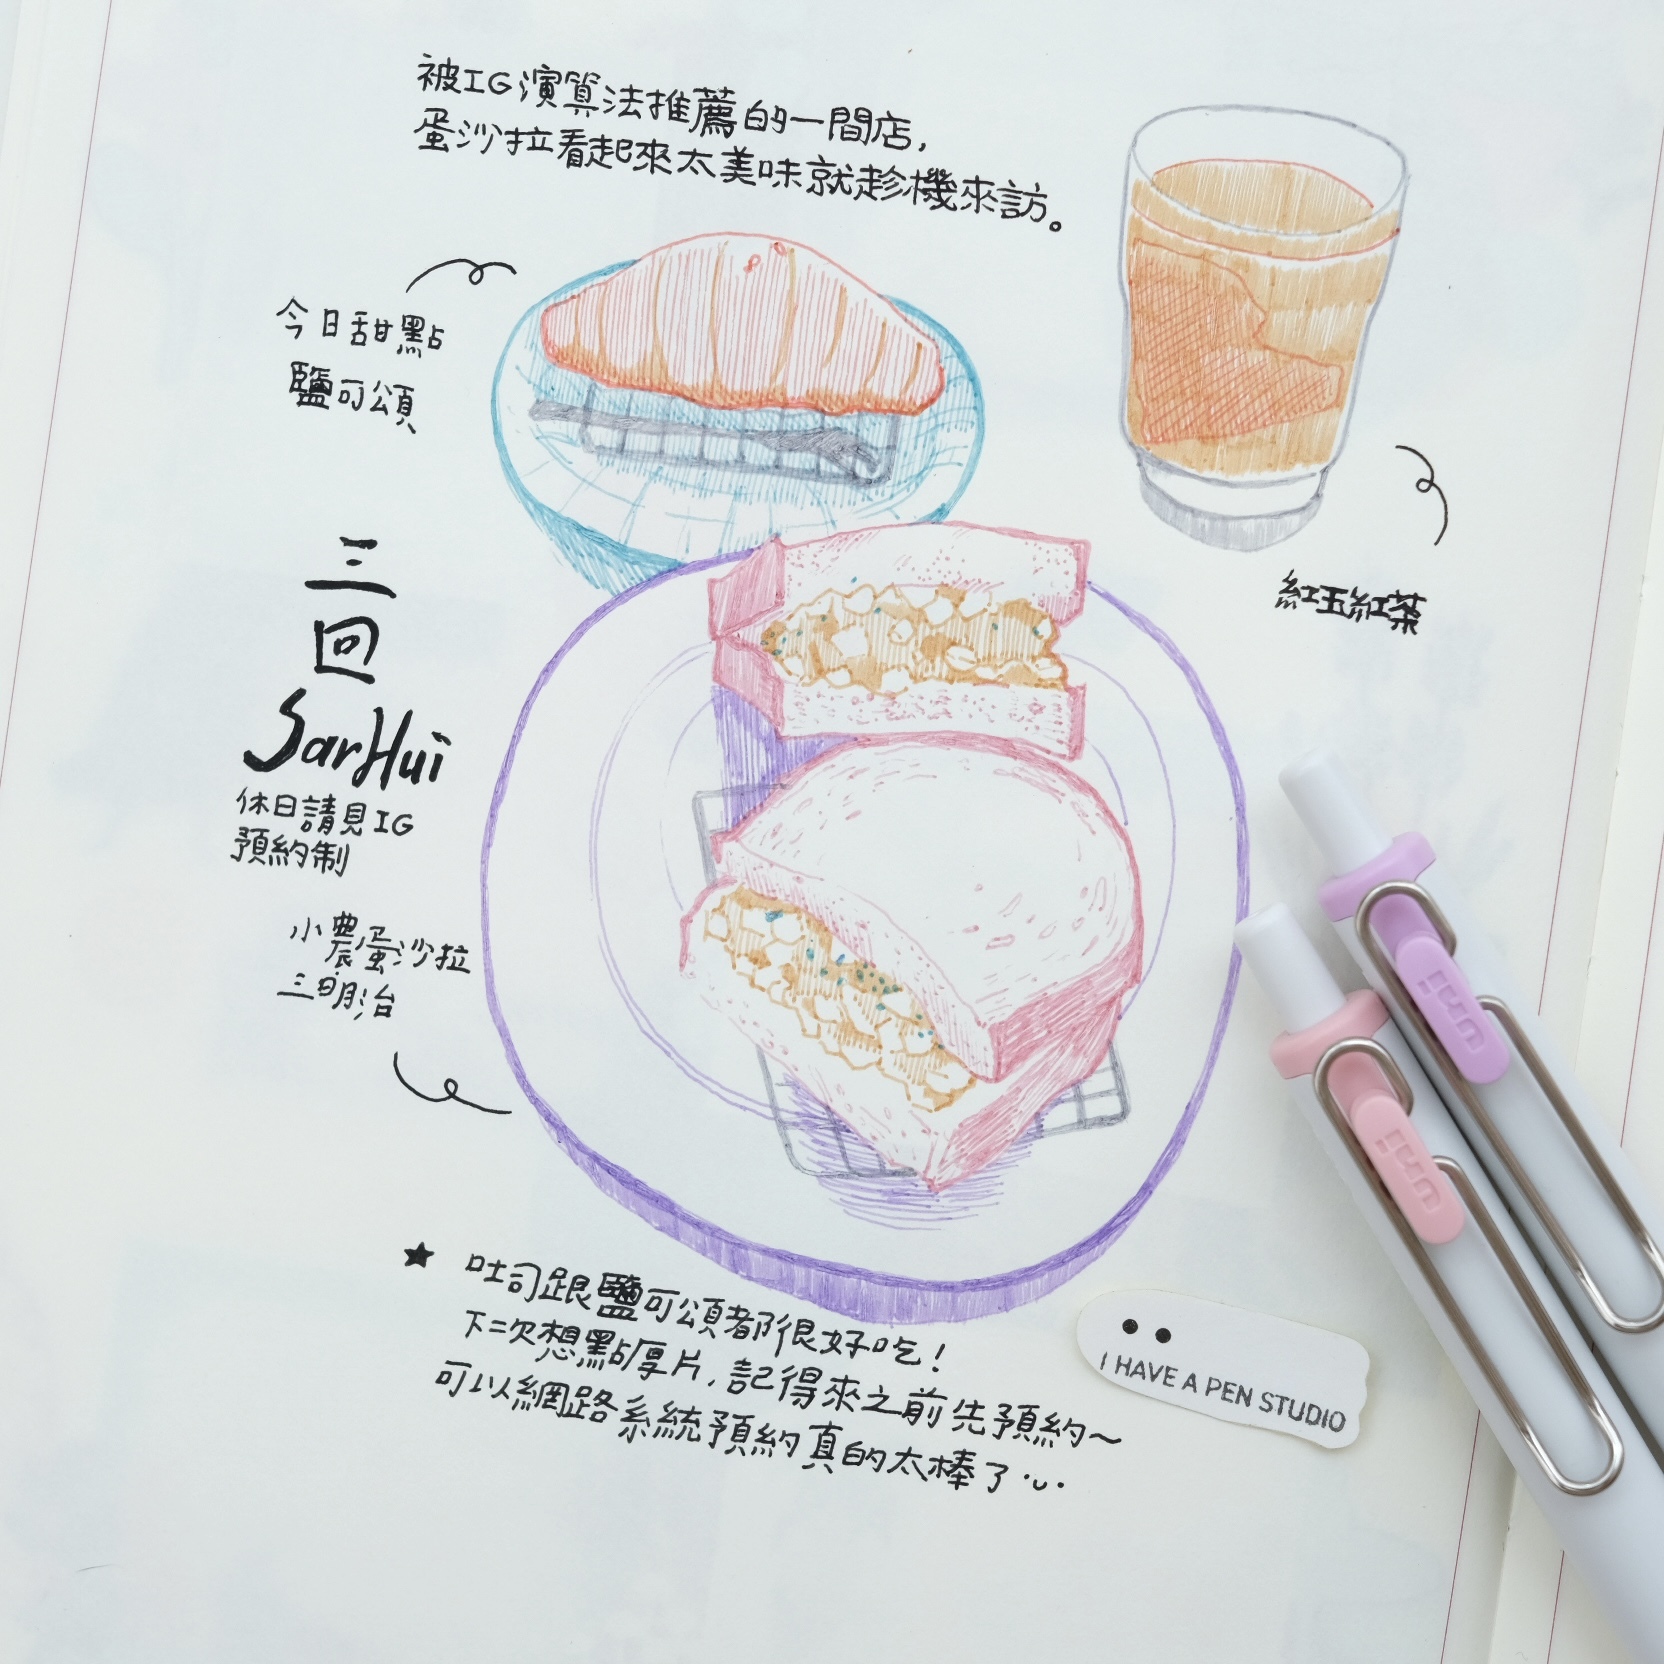 被IG演算法推薦的一間店，
蛋沙拉看起來太美味就趁機來訪。
今日甜點
鹽可頌
紅玉紅茶
三
回
SarHui
休日請見IG
預約制
小農蛋沙拉
三明治
★ 吐司跟鹽可頌都很好吃！
下次想點厚片，記得來之前先預約～
可以網路系統預約真的太棒了
I HAVE A PEN STUDIO
uni
uni